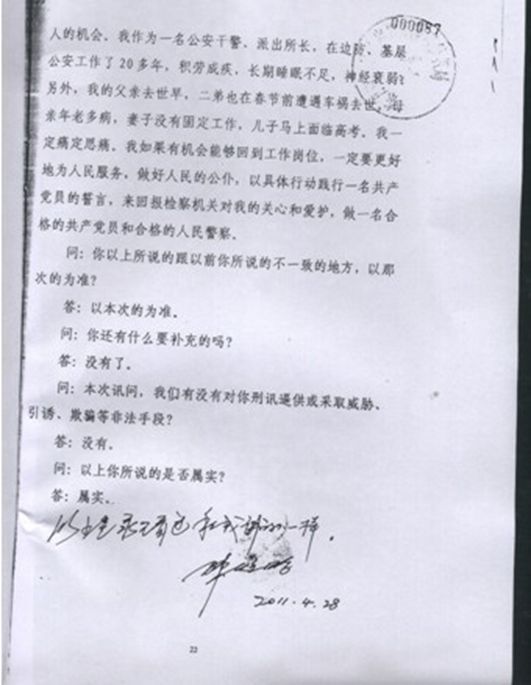 000087
人的机会。我作为一名公安干警、派出所长，在边防、基层
公安工作了20多年，积劳成疾，长期睡眠不足，神经衰弱；
另外，我的父亲去世早，二弟也在春节前遭遇车祸去世，母
亲年老多病，妻子没有固定工作，儿子马上面临高考。我一
定痛定思痛。我如果有机会能够回到工作岗位，一定要更好
地为人民服务，做好人民的公仆，以具体行动践行一名共产
党员的誓言，来回报检察机关对我的关心和爱护，做一名合
格的共产党员和合格的人民警察。
问：你以上所说的跟以前你所说的不一致的地方，以那
次的为准？
答：以本次的为准。
问：你还有什么要补充的吗？
答：没有了。
问：本次讯问，我们有没有对你刑讯逼供或采取威胁、
引诱、欺骗等非法手段？
答：没有。
问：以上你所说的是否属实？
答：属实。
以上笔录已看过和我讲的一样。
2011.4.28
22